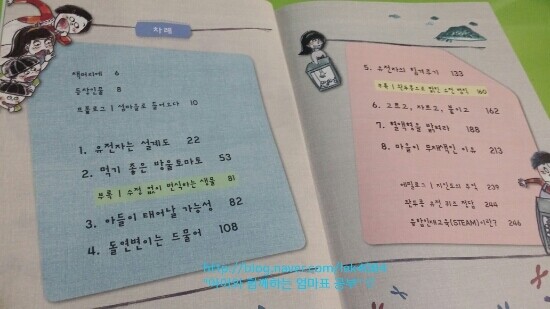 차례
책머리에 6
등장인물 8
프롤로그 | 섬마을로 들어오다 10
1. 유전자는 설계도 22
2. 먹기 좋은 방울토마토 53
부록 | 수정 없이 번식하는 생물 81
3. 아들이 태어날 가능성 82
4. 돌연변이는 드물어 108
5. 유전자의 힘겨루기 133
부록 | 160
6. 고르고, 자르고, 붙이고 162
7. 혈액형을 밝혀라 188
8. 마음이 무재색인 이유 213
에필로그 | 239
완두콩 유전 퀴즈 정답 244
융합인재교육(STEAM)이란? 246
http://blog.naver.com/
함께하는 엄마표